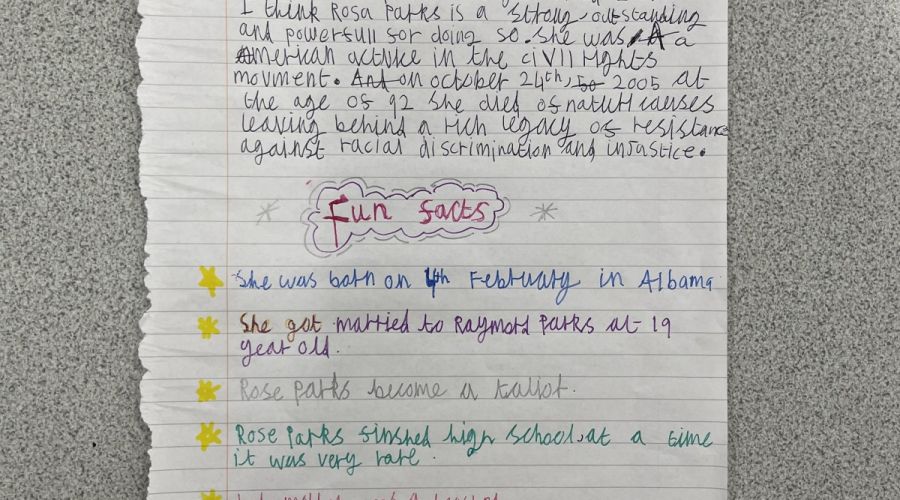 I think Rosa Parks is a strong, outstanding
and powerfull for doing so. She was A a
American activke in the civil rights
movment. And on october 24th, so 2005 at
the age of 92 she died of naturl causes
leaving behind a rich legacy of resistance
against racial discrimination and injustice.
Fun facts
She was born on 4th February in Albama
She got married to Raymord Parks at 19
year old.
Rose Parks become a tailor.
Rose Parks finshed high school, at a time
it was very rare.